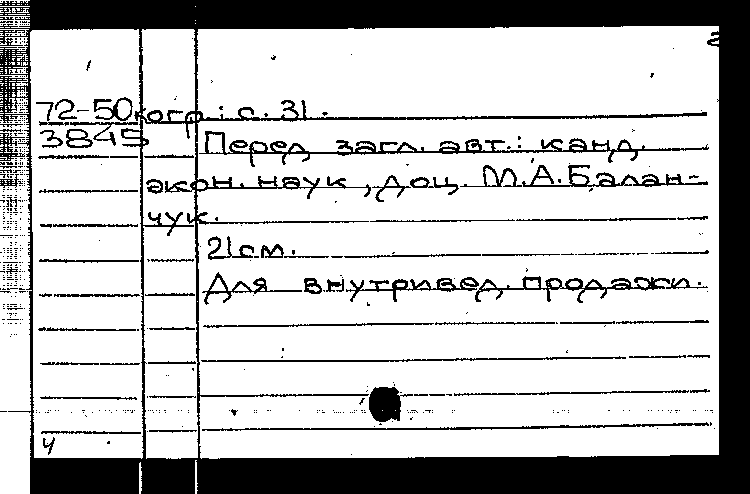 2
72-50 когр.: с. 31.
3845 Перед загл. авт.: канд.
экон. наук, доц. М.А. Балан-
чук.
21 см.
Для внутривед. продажи.
4